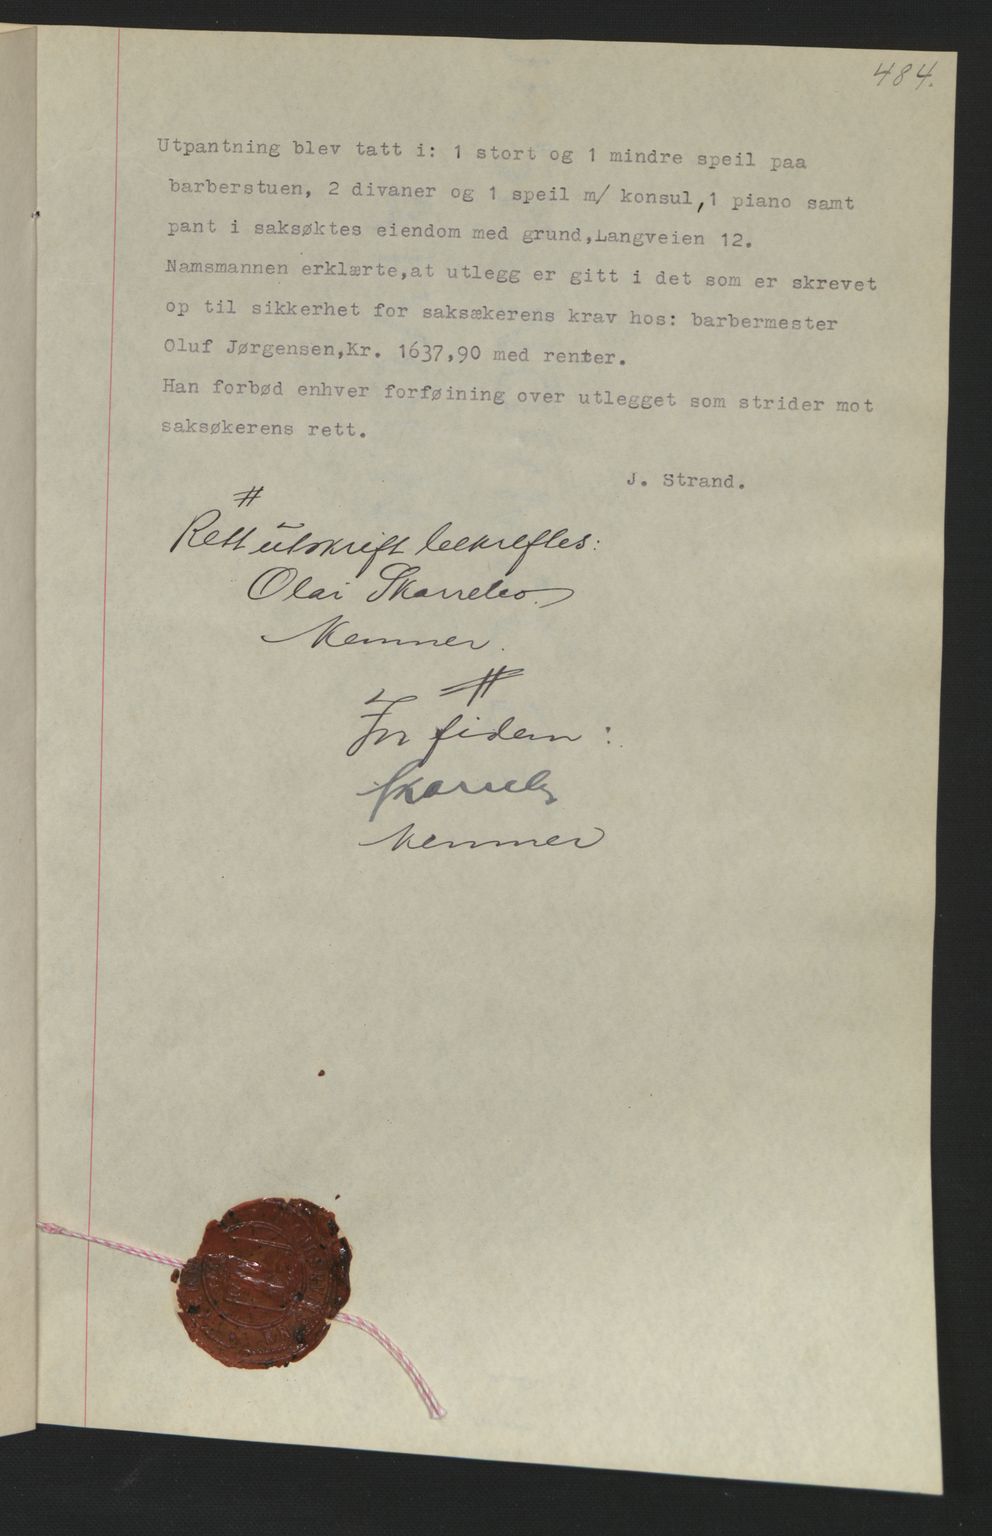 484.
Utpantning blev tatt i: 1 stort og 1 mindre speil paa
barberstuen, 2 divaner og 1 speil m/ konsul,1 piano samt
pant i saksøktes eiendom med grund,Langveien 12.
Namsmannen erklærte,at utlegg er gitt i det som er skrevet
op til sikkerhet for saksækerens krav hos: barbermester
Oluf Jørgensen,Kr. 1637,90 med renter.
Han forbød enhver forføining over utlegget som strider mot
saksøkerens rett.
J. Strand.
#
Rett utskrift bekreftes:
Olai Skarrebo.
Kemner.
#
In fidem:
Skarrebo
Kemner